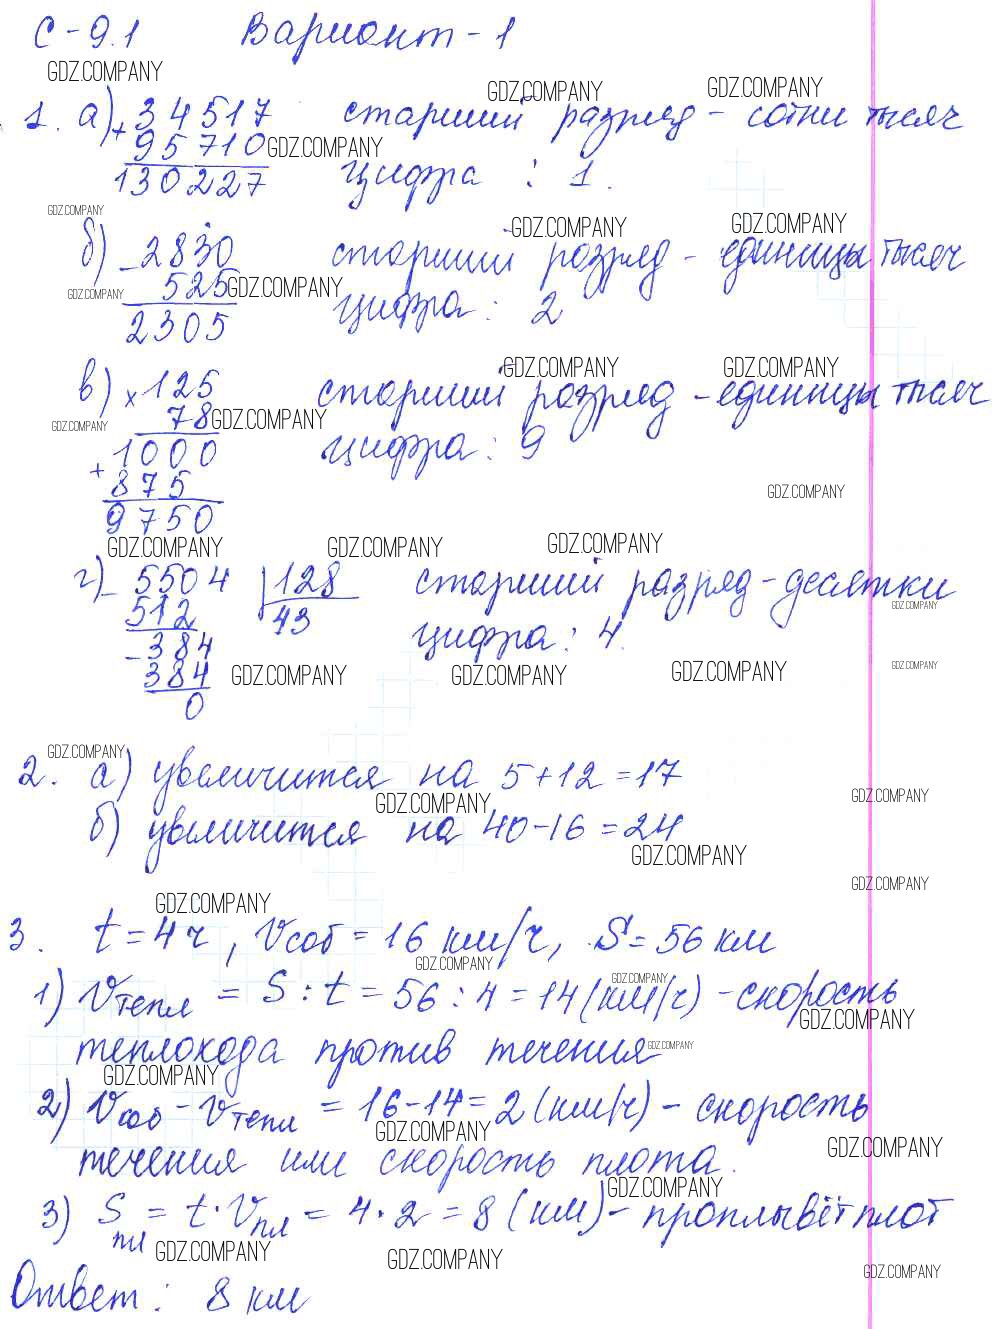 С-9.1 Вариант-1
GDZ.COMPANY
GDZ.COMPANY GDZ.COMPANY
1. а) + 34517 старший разряд - сотни тысяч
95710 GDZ.COMPANY
130227 цифра : 1.
GDZ.COMPANY
GDZ.COMPANY GDZ.COMPANY
б) - 2830 старший разряд - единицы тысяч
GDZ.COMPANY 525 GDZ.COMPANY
2305 цифра : 2
GDZ.COMPANY GDZ.COMPANY
в) x 125 старший разряд - единицы тысяч
GDZ.COMPANY 78 GDZ.COMPANY
+ 1000 цифра : 9
875 GDZ.COMPANY
9750
GDZ.COMPANY GDZ.COMPANY GDZ.COMPANY
г) - 5504 128 старший разряд - десятки
512 43 GDZ.COMPANY
- 384 цифра : 4.
384 GDZ.COMPANY GDZ.COMPANY GDZ.COMPANY GDZ.COMPANY
0
GDZ.COMPANY
2. а) увеличится на 5+12=17
GDZ.COMPANY GDZ.COMPANY
б) увеличится на 40-16=24
GDZ.COMPANY
GDZ.COMPANY
GDZ.COMPANY
3. t=4ч, Vсоб=16 км/ч, S=56 км
GDZ.COMPANY GDZ.COMPANY
1) Vтепл = S:t = 56:4=14(км/ч) - скорость
GDZ.COMPANY
теплохода против течения GDZ.COMPANY
GDZ.COMPANY
2) Vсоб - Vтепл = 16-14=2(км/ч) - скорость
GDZ.COMPANY GDZ.COMPANY
течения или скорость плота.
GDZ.COMPANY
3) Sпл = t·Vпл = 4·2=8(км) - проплывёт плот
GDZ.COMPANY GDZ.COMPANY GDZ.COMPANY
Ответ: 8 км